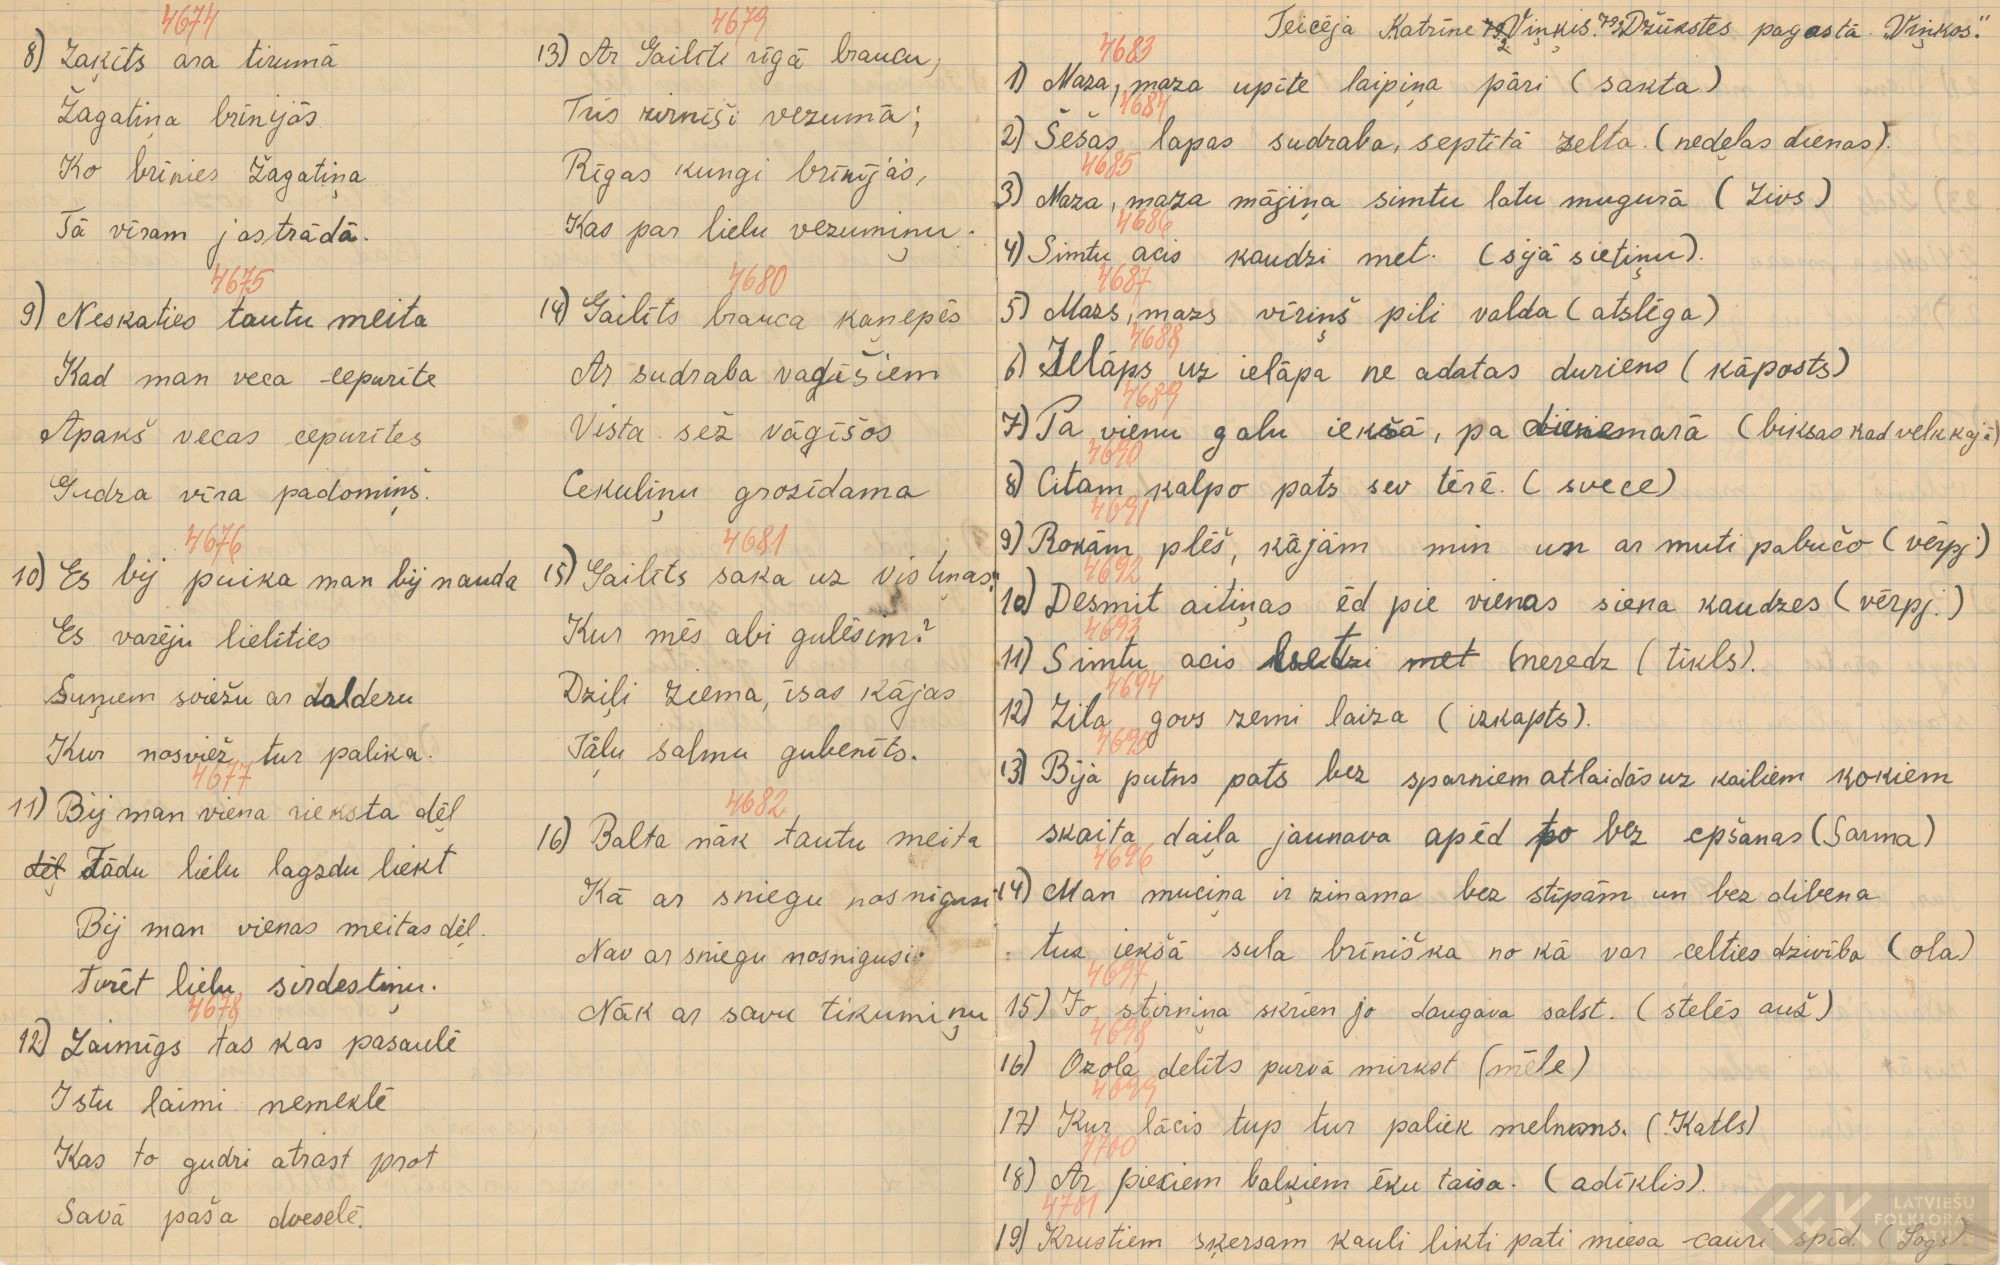 4674
8) Zaķīts ara tīrumā
Žagatiņa brīnijās
Ko brīnies žagatiņa
Tā vīram jastrādā.
4675
9) Neskaties tautu meita
Kad man veca cepurīte
Apakš vecas cepurītes
Gudra vīra padomiņš.
4676
10) Es bij puika man bij nauda
Es varēju lielīties
Suņiem sviežu ar dalderu
Kur nosviež tur palika.
4677
11) Bij man viena rieksta dēļ
dēļ Tādu lielu lagzdu liekt
Bij man vienas meitas dēļ.
Turēt lielu sirdestiņu.
4678
12) Laimīgs tas kas pasaulē
Istu laimi nemeklē
Kas to gudri atrast prot
Savā paša dvēselē.
4679
13) Ar Gailīti rīgā braucu,
Trīs zirnīši vezumā;
Rīgas kungi brīnijās,
Kas par lielu vezumiņu.
4680
14) Gailīts brauca kaņepēs
Ar sudraba vāgīšiem
Vista sēž vāgīšos
Cekuliņu grozīdama
4681
15) Gailīts saka uz vistiņas:
Kur mēs abi gulēsim?
Dziļi ziema, īsas kājas
Tāļu salmu gubenīts.
4682
16) Balta nāk tautu meita
Kā ar sniegu nosnigusi
Nav ar sniegu nosnigusi.
Nāk ar savu tikumiņu
Teicēja Katrīne Viņķis. 79 g Džūkstes pagastā "Viņkos."
4683
1) Maza, maza upīte laipiņa pāri (sakta)
4684
2) Šešas lapas sudraba, septītā zelta. (nedeļas dienas).
4685
3) Maza, maza mājiņa simtu latu mugurā (zivs)
4686
4) Simtu acis kaudzi met. (sijā sietiņu).
4687
5) Mazs, mazs vīriņš pili valda (atslēga)
4688
6) Ielāps uz ielāpa ne adatas duriens (kāposts)
4689
7) Pa vienu galu iekšā, pa marā (biksas kad velk kajā)
4690
8) Citam kalpo pats sev tērē. (svece)
4691
9) Rokām plēš, kājām min un ar muti pabučo (vērpj.)
4692
10) Desmit aitiņas ēd pie vienas siena kaudzes (vērpj.)
4693
11) Simtu acis met neredz (tīkls).
4694
12) Zila govs zemi laiza (izkapts).
4695
13) Bija putns pats bez sparniem atlaidās uz kailiem kokiem
skaita daiļa jaunava apēd to bez epšanas (Sarma)
4696
14) Man muciņa ir zinama bez stīpām un bez dibena
tur iekšā sula brīniška no kā var celties dzivība (ola)
4697
15) Jo stirniņa skrien jo daugava salst. (stelēs auž)
4698
16) Ozola delīts purvā mirkst (mēle)
4699
17) Kur lācis tup tur paliek melnums. (Katls)
4700
18) Ar pieciem baļķiem ēku taisa. (adīklis).
4701
19) Krustiem sķersam kauli likti pati miesa cauri spīd. (Logs).
LATVIEŠU
FOLKLORAS